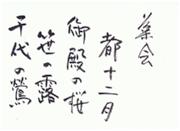 葉会
都十二月
御殿の桜
笹の露
千代の鶯